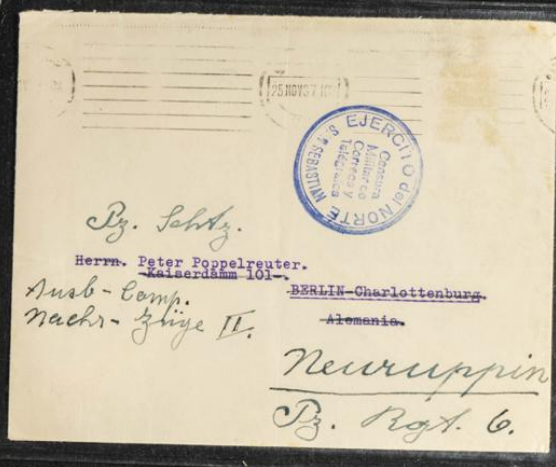 25 NOV 37
EJERCITO del NORTE
S. SEBASTIAN
Censura
Militar de
Correos y
Pz. Schtz.
Herrn. Peter Poppelreuter.
Kaiserdamm 101-.
BERLIN-Charlottenburg.
Alemania.
Ausb-Comp.
Nachr-Züge II.
Neuruppin
Pz. Rgt. 6.